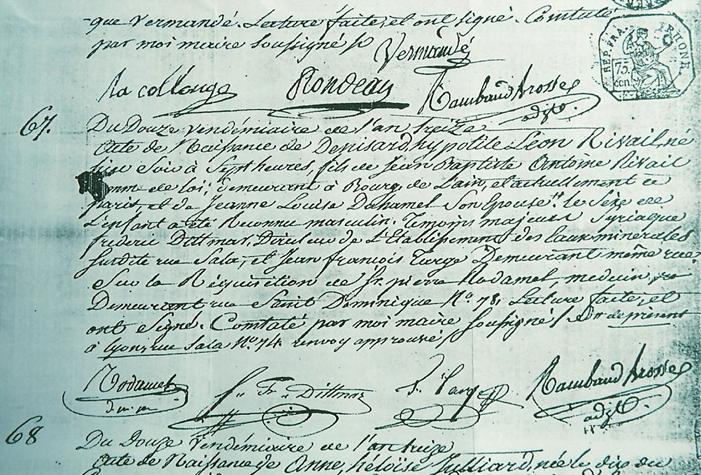 que Vermandé. Lecture faite, et ont signé. Constaté
par moi maire soussigné
Vermandé
REP. FRA.
RHONE
75.
cen.
La collonge Rondeau Rambaud Brosse
adjt.
67.
Du Douze vendémiaire de l'an treize
acte de Naissance de Denisard, hypolite Léon Rivail, né
hier soir à Sept heures, fils de Jean Baptiste Antoine Rivail
homme de loi, demeurant à Bourg de l'ain, et actuellement à
paris, et de Jeanne Louise Duhamel Son épouse. le Sexe de
L'enfant a été Reconnu masculin. Témoins majeurs Syriaque
frédéric Dittmar, Directeur de L'Etablissement des Eaux minérales
Susdite rue Sala, et Jean françois Targe Demeurant même rue
Sur la Réquisition de Sr. pierre Radamel, médecin
Demeurant rue Saint Dominique No. 78, Lecture faite, et
ont Signé. Constaté par moi maire Soussigné
à Lyon, rue Sala No. 74 renvoy approuvé
Radamel
Dittmar
Targe
Rambaud Brosse
adjt.
68
Du Douze Vendémiaire de l'an treize
acte de Naissance de Anne, héloïse Julliard, née le dix du